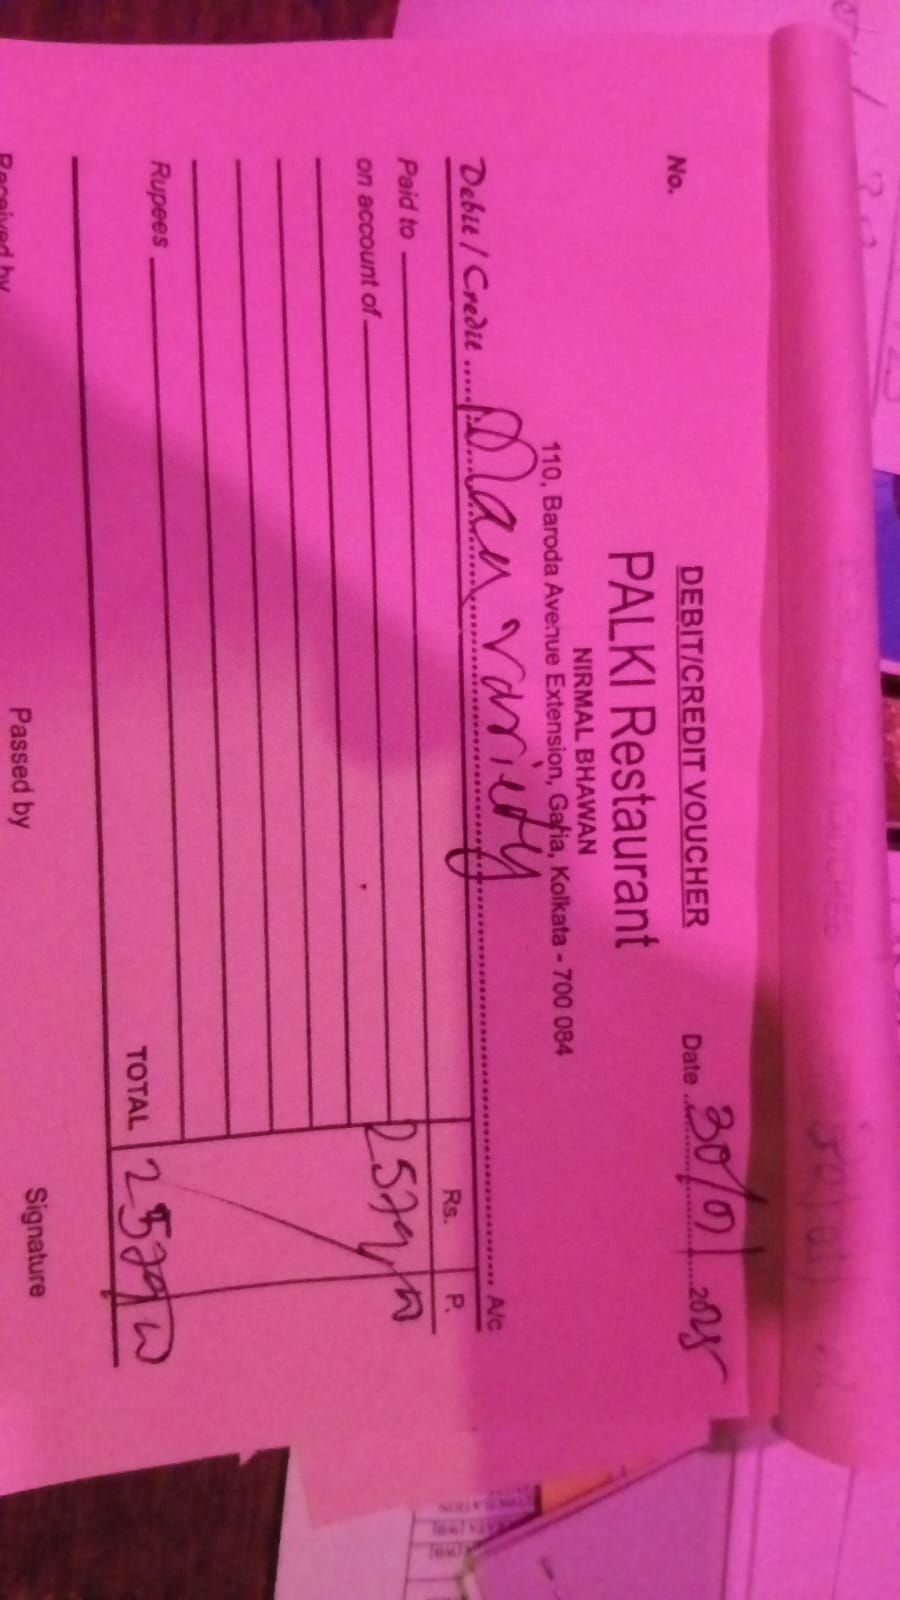 DEBIT/CREDIT VOUCHER
No.
Date 30/01 2025
PALKI Restaurant
NIRMAL BHAWAN
110, Baroda Avenue Extension, Garia, Kolkata - 700 084
Debit / Credit variety A/c
Paid to
Rs. P.
on account of
Rupees
TOTAL
Received by
Passed by
Signature